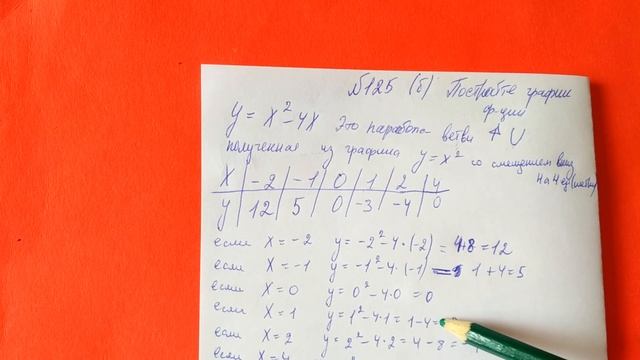 №125 (б) Постройте график
ф-ции
y = x² - 4x Это парабола ветви ↑ ∪
полученная из графика y = x² со смещением вниз
на 4 ед
X | -2 | -1 | 0 | 1 | 2 | 4
y | 12 | 5 | 0 | -3 | -4 | 0
если x = -2 y = -2² - 4·(-2) = 4+8 = 12
если x = -1 y = -1² - 4·(-1) = 1+4 = 5
если x = 0 y = 0² - 4·0 = 0
если x = 1 y = 1² - 4·1 = 1-4 =
если x = 2 y = 2² - 4·2 = 4 - 8 =
если x = 4